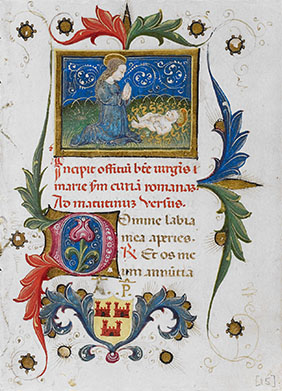 Incipit offitiũ bte uirginis
marie sm curiã romanaz
Ad matutinum versus.
Domine labia
mea aperies.
R Et os me
um annũtia
P
[15]